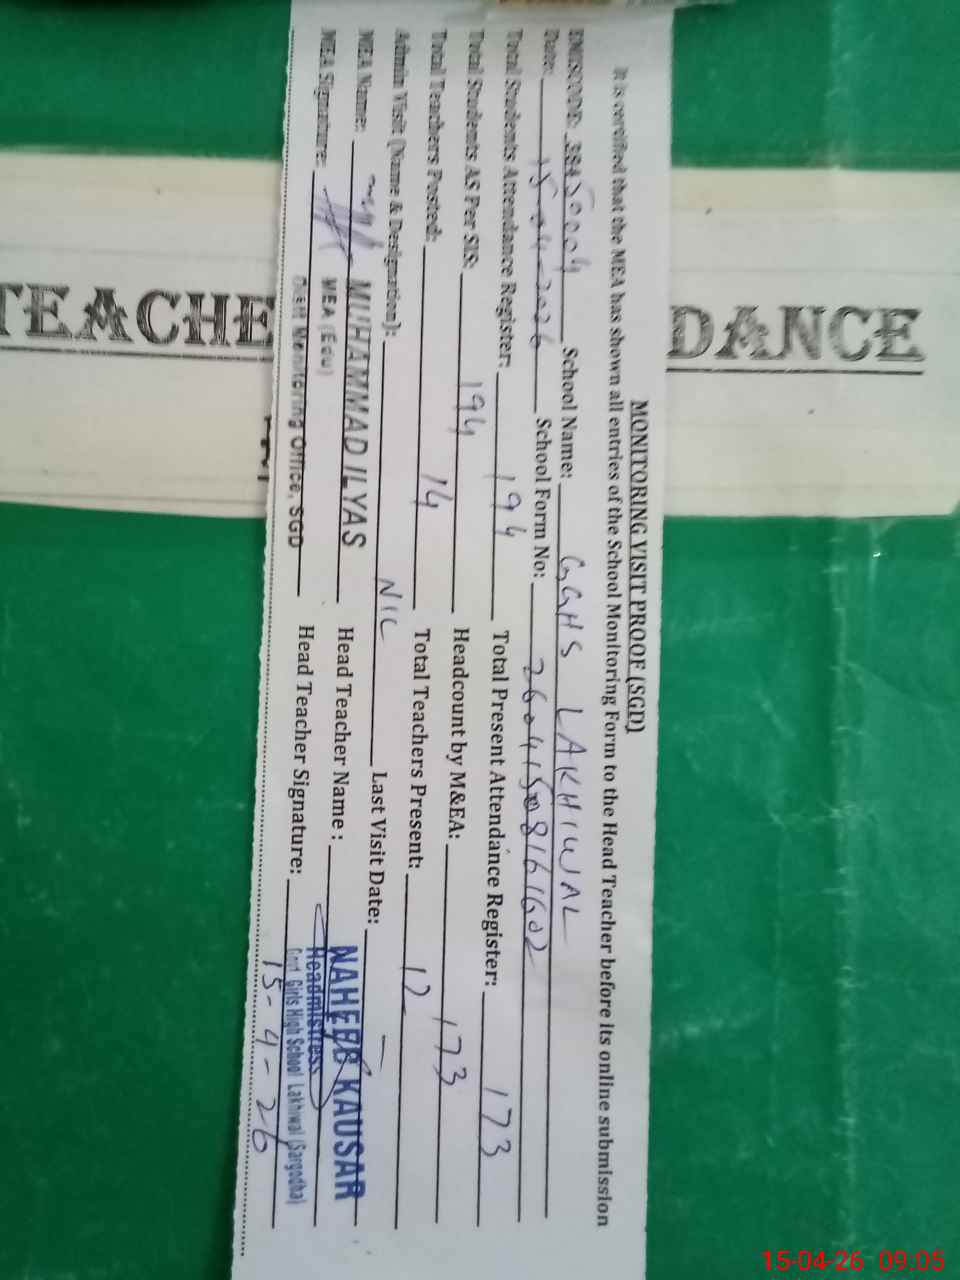 MONITORING VISIT PROOF (SGD)
It is certified that the MEA has shown all entries of the School Monitoring Form to the Head Teacher before its online submission
EMISCODE: 38450004 School Name: GGHS LAKHIWAL
Date: 15-04-2026 School Form No: 
Total Students Attendance Register: 194 Total Present Attendance Register: 173
Total Students AS Per SIS: 194 Headcount by M&EA: 173
Total Teachers Posted: 14 Total Teachers Present: 12
Admin Visit (Name & Designation): NIL Last Visit Date: —
MEA Name: MUHAMMAD ILYAS Head Teacher Name :
MEA Signature: MEA (Edu) Head Teacher Signature:
Distt Monitoring Office, SGD
NAHEED KAUSAR
Headmistress
Govt Girls High School Lakhiwal (Sargodha)
15-4-26
TEACHE
DANCE
15-04-26 09:05